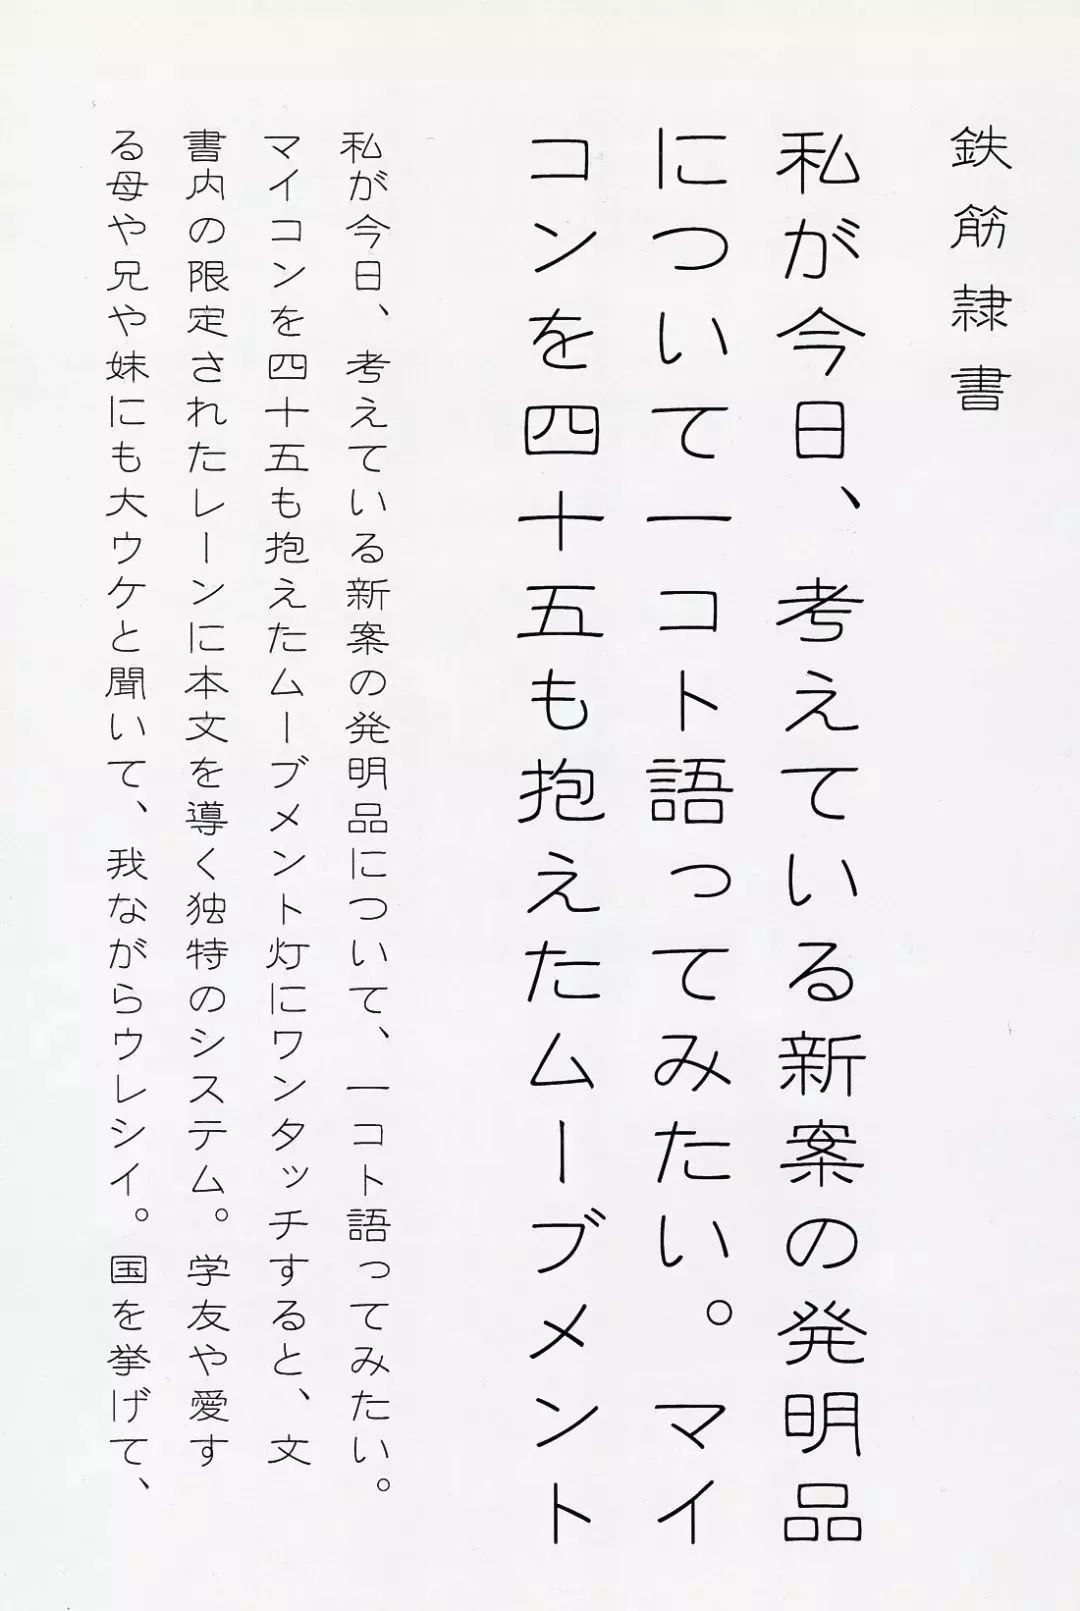 鉄筋隷書
私が今日、考えている新案の発明品
について一コト語ってみたい。マイ
コンを四十五も抱えたムーブメント
私が今日、考えている新案の発明品について、一コト語ってみたい。
マイコンを四十五も抱えたムーブメント灯にワンタッチすると、文
書内の限定されたレーンに本文を導く独特のシステム。学友や愛す
る母や兄や妹にも大ウケと聞いて、我ながらウレシイ。国を挙げて、